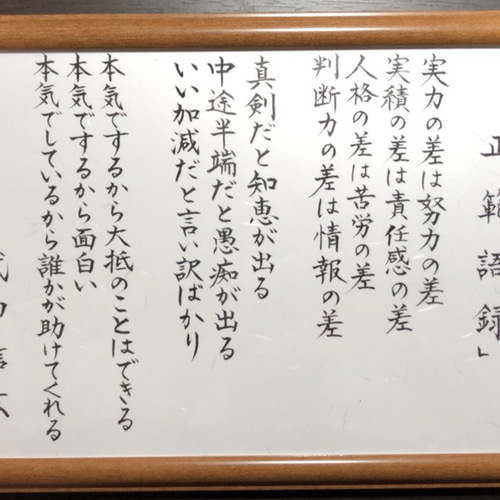 正範語録」
実力の差は努力の差
実績の差は責任感の差
人格の差は苦労の差
判断力の差は情報の差
真剣だと知恵が出る
中途半端だと愚痴が出る
いい加減だと言い訳ばかり
本気でするから大抵のことはできる
本気でするから面白い
本気でしているから誰かが助けてくれる